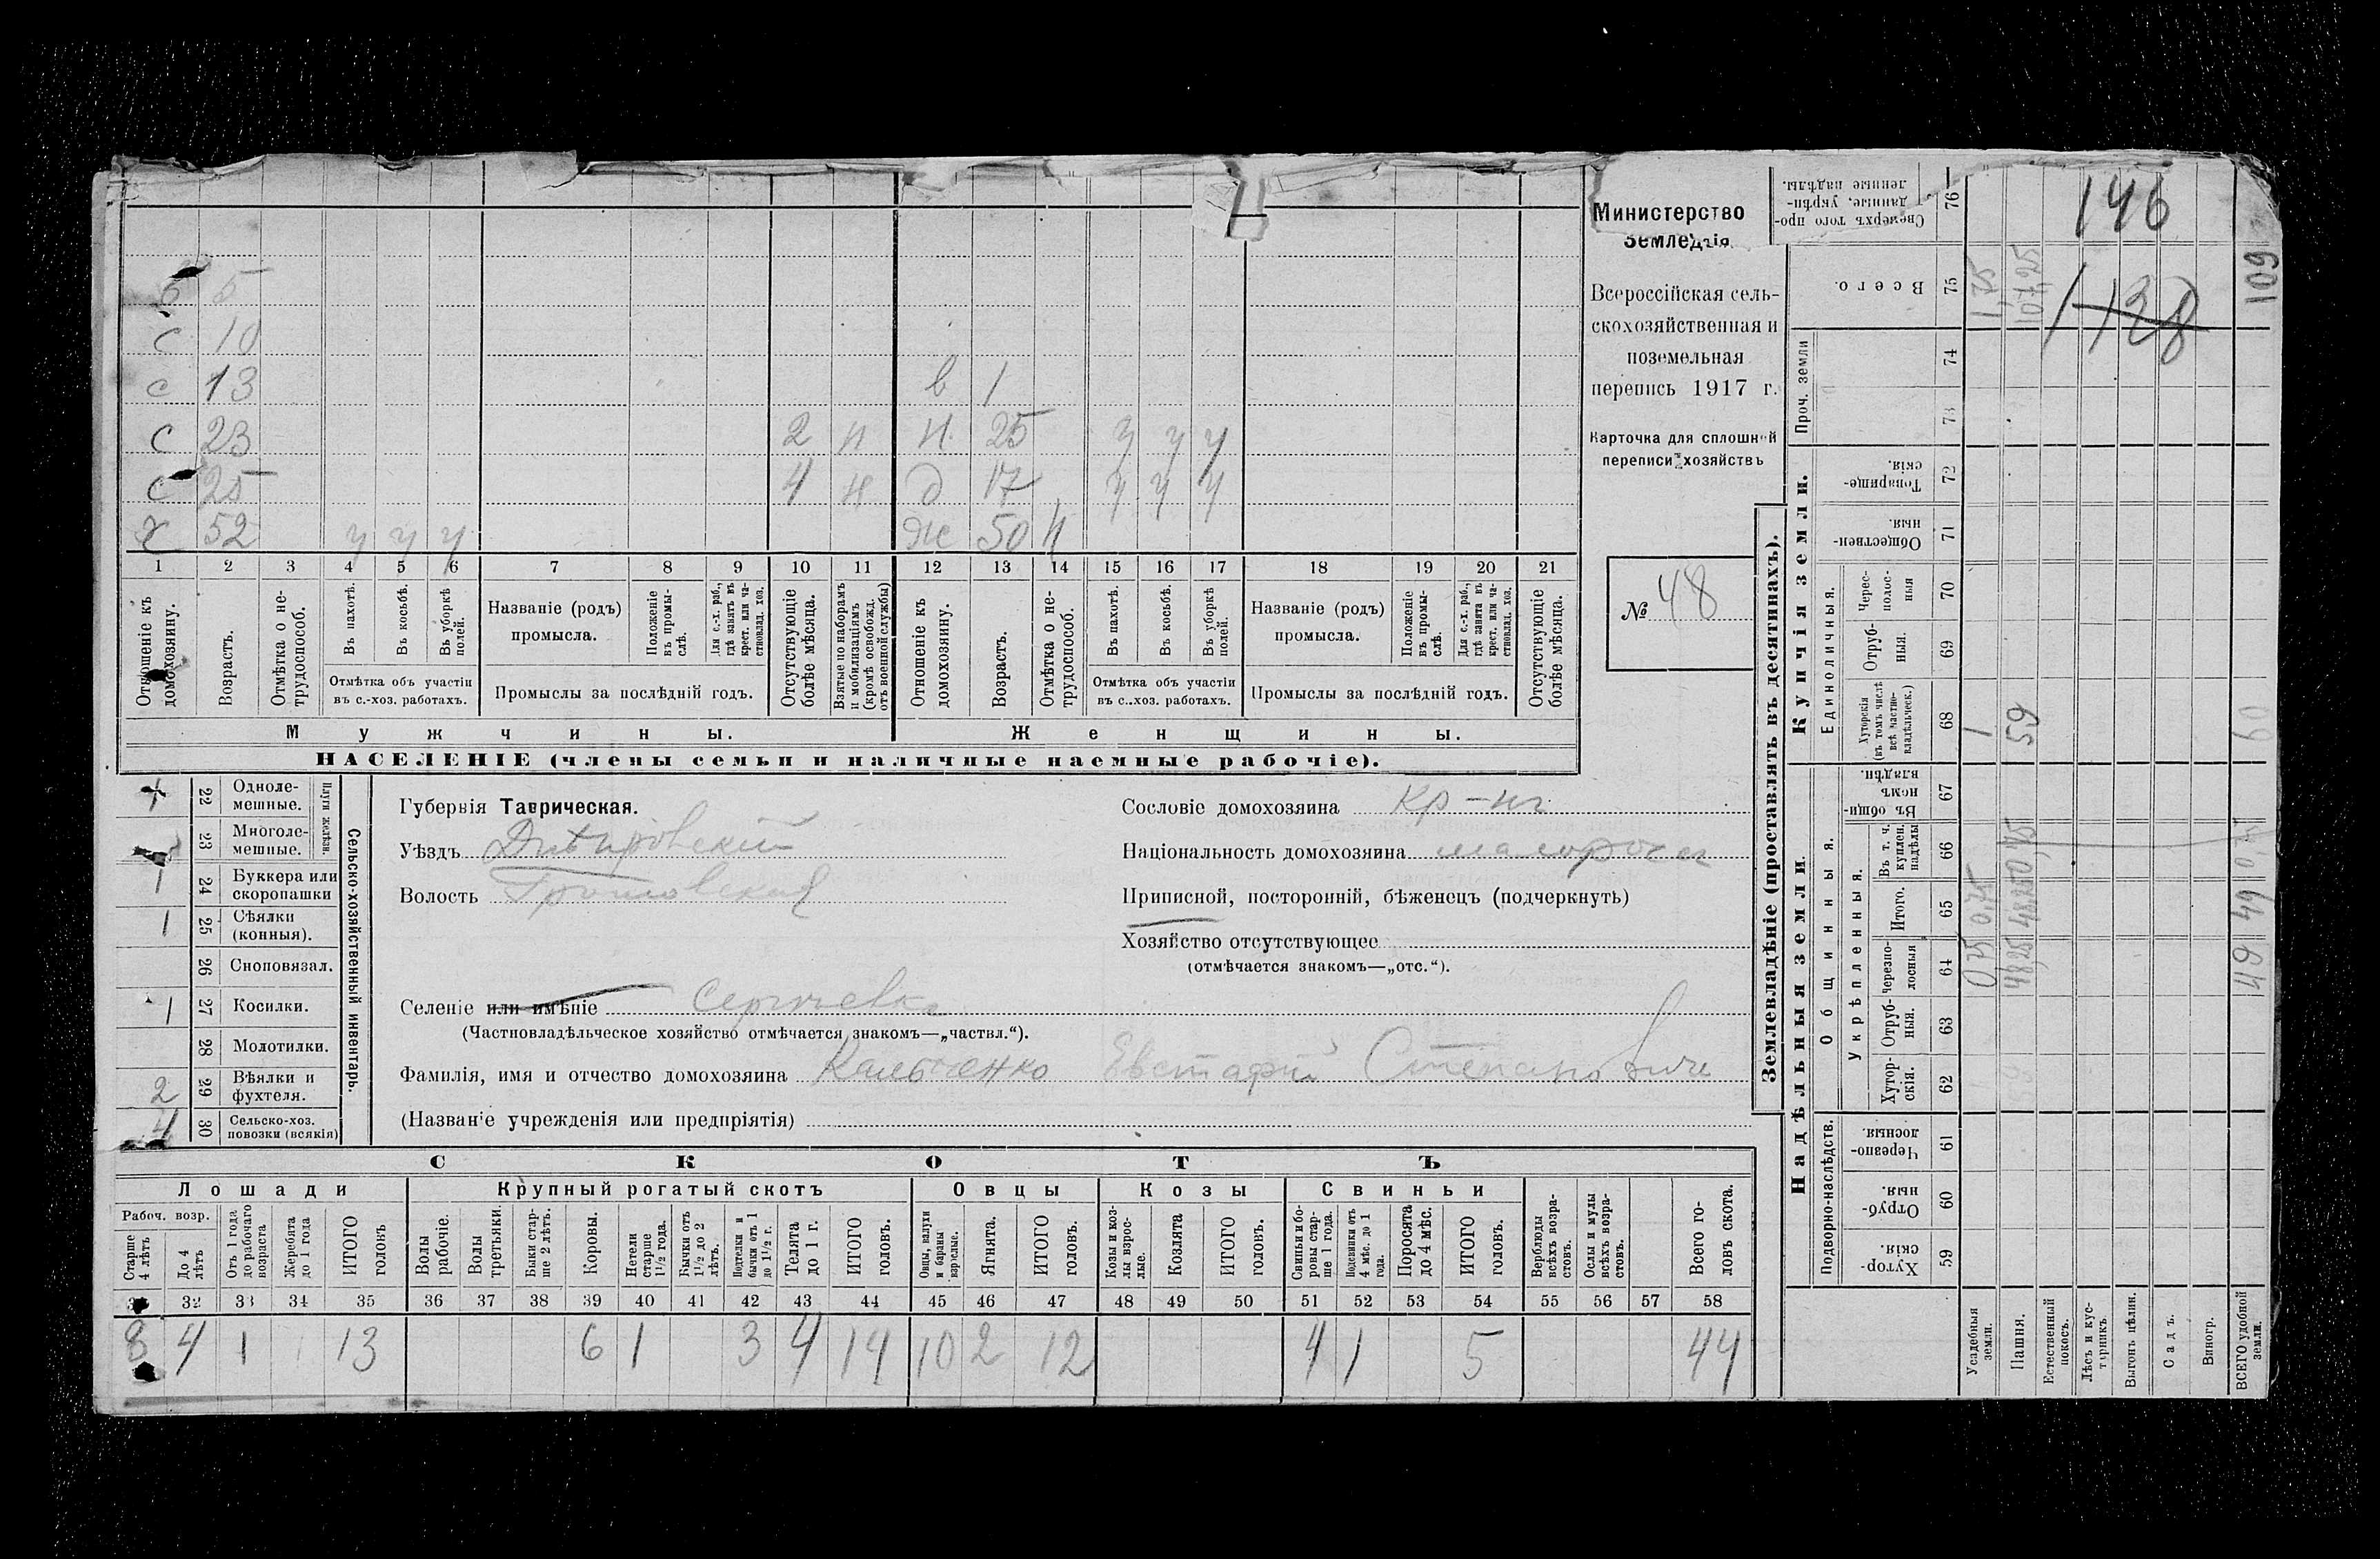 Министерство
Земледѣлія
Всероссійская сель-
скохозяйственная и
поземельная
перепись 1917 г.
Карточка для сплошной
переписи хозяйствъ
№ 48
5 5
с 10
с 13 в 1
с 23 2 н н. 25 у у у
с 25 4 н д 17 у у у
х 52 у у у ж 50 н
1 2 3 4 5 6 7 8 9 10 11 12 13 14 15 16 17 18 19 20 21
Отношеніе къ домохозяину.
Возрастъ.
Отмѣтка о не-трудоспособ.
Въ пахотѣ.
Въ косьбѣ.
Въ уборкѣ полей.
Отмѣтка объ участіи
въ с.-хоз. работахъ.
Названіе (родъ)
промысла.
Положеніе въ промы-слѣ.
Для с.-х. раб., гдѣ занятъ въ крест. или ча-стновлад. хоз.
Промыслы за послѣдній годъ.
Отсутствующіе болѣе мѣсяца.
Взятые по наборамъ и мобилизаціямъ (кромѣ освобожд. отъ военной службы)
Отношеніе къ домохозяину.
Возрастъ.
Отмѣтка о не-трудоспособ.
Въ пахотѣ.
Въ косьбѣ.
Въ уборкѣ полей.
Отмѣтка объ участіи
въ с..хоз. работахъ.
Названіе (родъ)
промысла.
Положеніе въ промы-слѣ.
Для с.-х. раб., гдѣ занята въ крест. или ча-стновлад. хоз.
Промыслы за послѣдній годъ.
Отсутствующіе болѣе мѣсяца.
Мужчины. Женщины.
НАСЕЛЕНІЕ (члены семьи и наличные наемные рабочіе).
Сельско-хозяйственный инвентарь.
Плуги желѣзн.
22 Одноле-мешные.
23 Многоле-мешные.
1 24 Буккера или скоропашки
1 25 Сѣялки (конныя).
26 Сноповязал.
1 27 Косилки.
28 Молотилки.
2 29 Вѣялки и фухтеля.
4 30 Сельско-хоз. повозки (всякія)
Губернія Таврическая.
Уѣздъ Днѣпровскій
Волость
Селеніе или имѣніе Сергѣевка
(Частновладѣльческое хозяйство отмѣчается знакомъ—„частвл.“).
Фамилія, имя и отчество домохозяина Кальченко Евстафій Степановичъ
(Названіе учрежденія или предпріятія)
Сословіе домохозяина кр-нъ
Національность домохозяина малороссъ
Приписной, посторонній, бѣженецъ (подчеркнуть)
Хозяйство отсутствующее
(отмѣчается знакомъ—„отс.“).
СКОТЪ
Лошади Крупный рогатый скотъ Овцы Козы Свиньи
Рабоч. возр.
Старше 4 лѣтъ
До 4 лѣтъ
Отъ 1 года до рабочаго возраста
Жеребята до 1 года
ИТОГО головъ
Волы рабочіе.
Волы третьяки.
Быки стар-ше 2 лѣтъ.
Коровы.
Нетели старше 1½ года.
Бычки отъ 1½ до 2 лѣтъ.
Подтелки и бычки отъ 1 до 1½ г.
Телята до 1 г.
ИТОГО головъ.
Овцы, валухи и бараны взрослые.
Ягнята.
ИТОГО головъ.
Козы и коз-лы взрос-лые.
Козлята
ИТОГО головъ.
Свиньи и бо-ровы стар-ше 1 года.
Подсвинки отъ 4 мѣс. до 1 года.
Поросята до 4 мѣс.
ИТОГО головъ.
Верблюды всѣхъ возра-стовъ.
Ослы и мулы всѣхъ возра-стовъ.
Всего го-ловъ скота.
32 33 34 35 36 37 38 39 40 41 42 43 44 45 46 47 48 49 50 51 52 53 54 55 56 57 58
8 4 1 13 6 1 3 4 14 10 2 12 4 1 5 44
Землевладѣніе (проставлять въ десятинахъ).
Надѣльныя земли. Купчія земли. Проч. земли
Подворно-наслѣдств. Общинныя. Единоличныя.
Укрѣпленныя.
Хутор-скія. 59
Отруб-ныя. 60
Черезпо-лосныя. 61
Хутор-скія. 62
Отруб-ныя. 63
Черезпо-лосныя 64
Итого. 65
Въ т. ч. куплен. надѣлы 66
Въ общи-номъ владѣн. 67
Хуторскія (въ томъ числѣ всѣ частно-владѣльческ.) 68
Отруб-ныя. 69
Черес-полос-ныя 70
Обществен-ныя. 71
Товарище-скія. 72
73
74
Всего. 75
Сверхъ того про-данные, укрѣп-ленные надѣлы. 76
Усадебныя земли. 0,75 0,75 1 1,75
Пашня. 48,25 48,25 59 107,25
Естественный покосъ.
Лѣсъ и кус-тарникъ.
Выгонъ цѣлин.
Садъ.
Виногр.
ВСЕГО удобной земли. 49 49 60 109
146
138